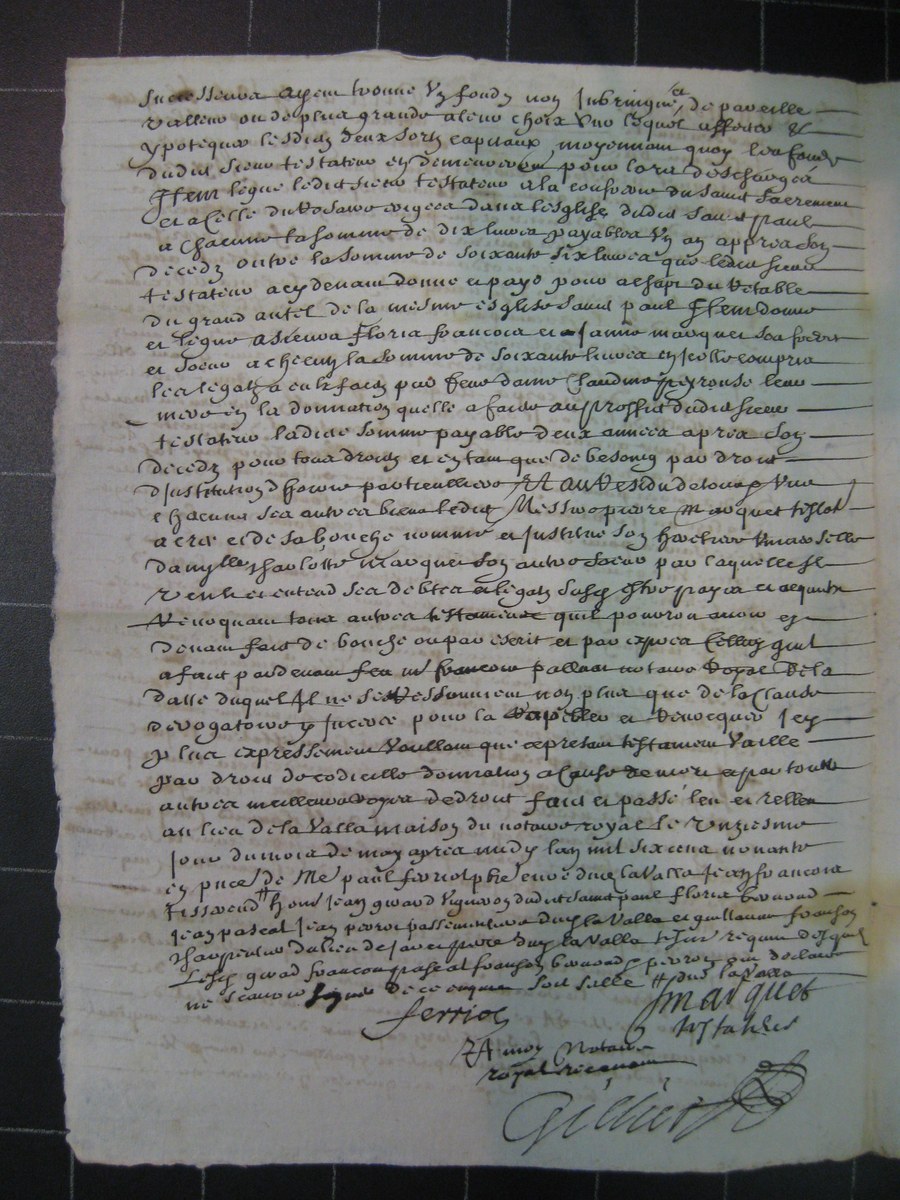 successeurs ayent trouvé un fondz non subringué de pareille
valleur ou de plus grande a leur choix sur lequel affecter et
ypotequer lesdictz deux sortz capitaux moyennant quoy les fondz
dudict sieur testateur en demeureront pour lors deschargés
Item lègue ledict sieur testateur a la confrerie du Saint Sacrement
et a celle du Rosaire erigées dans lesglise dudict Saint paul
a chacune la somme de dix livres payables un an appres son
deceds outre la somme de soixante six livres que ledict sieur
testateur a cy devant donné et payé pour du Retable
du grand autel de la mesme esglise Saint paul Item donne
et lègue a sieurs Floris francois et Janne marquet ses freres
et soeur a chacun la somme de soixante livres en icelle compris
les legatz a eulx faitz par feue dame Claudine peyrouse leur
mere en la donnation quelle a faite au proffit dudict sieur
testateur ladicte somme payable deux années apres son
deceds pour tous droitz et en tant que de besoing par droit
dinstitution dheoirie particulliere Et au Residu de tous et uns
chacuns ses autres biens ledict Messire pierre Marquet testat
a créé et de sa bouche nommé et institué son heritiere universelle
damylle Charlotte Marquet son autre soeur par laquelle il
veult et entend ses debtes et legatz susd estre payés et acquités
Revoquant tous autres testamentz quil pouroit avoir cy
devant faits de bouche ou par escrit et par expres celluy quil
a fait pardevant feu me francois palluat notaire Royal de la
datte duquel Il ne se Ressouvient non plus que de la clause
derogatoire y inseree pour la Rapeller et Revocquer icy
plus expressement Voullant que ce present testament vaille
par droit de codicille donnation a cause de mort et par toutes
autres meilleures voyes de droit fait et passé leu et relleu
au lieu de la Valla maison du notaire royal le unziesme
jour du mois de may apres midy lan mil six cens nonante
en pnce de Me paul ferriol phe envé dud la Valla Jean francois
tisserend hon Jean girard vigneron dudict Saint paul floris bernond
jean pascal Jean perrot passementiers dud la Valla et guillaume franson
charpentier du lieu de et pierre dud la Valla tesm requis desquelz
Lesd girard francois pascal franson bernond perrot ont declaré
ne scavoir signer de ce enquis soit sellé dud la Valla
ferriol
Marquet
testateur
Et moy Notaire
royal recevant
Gillier